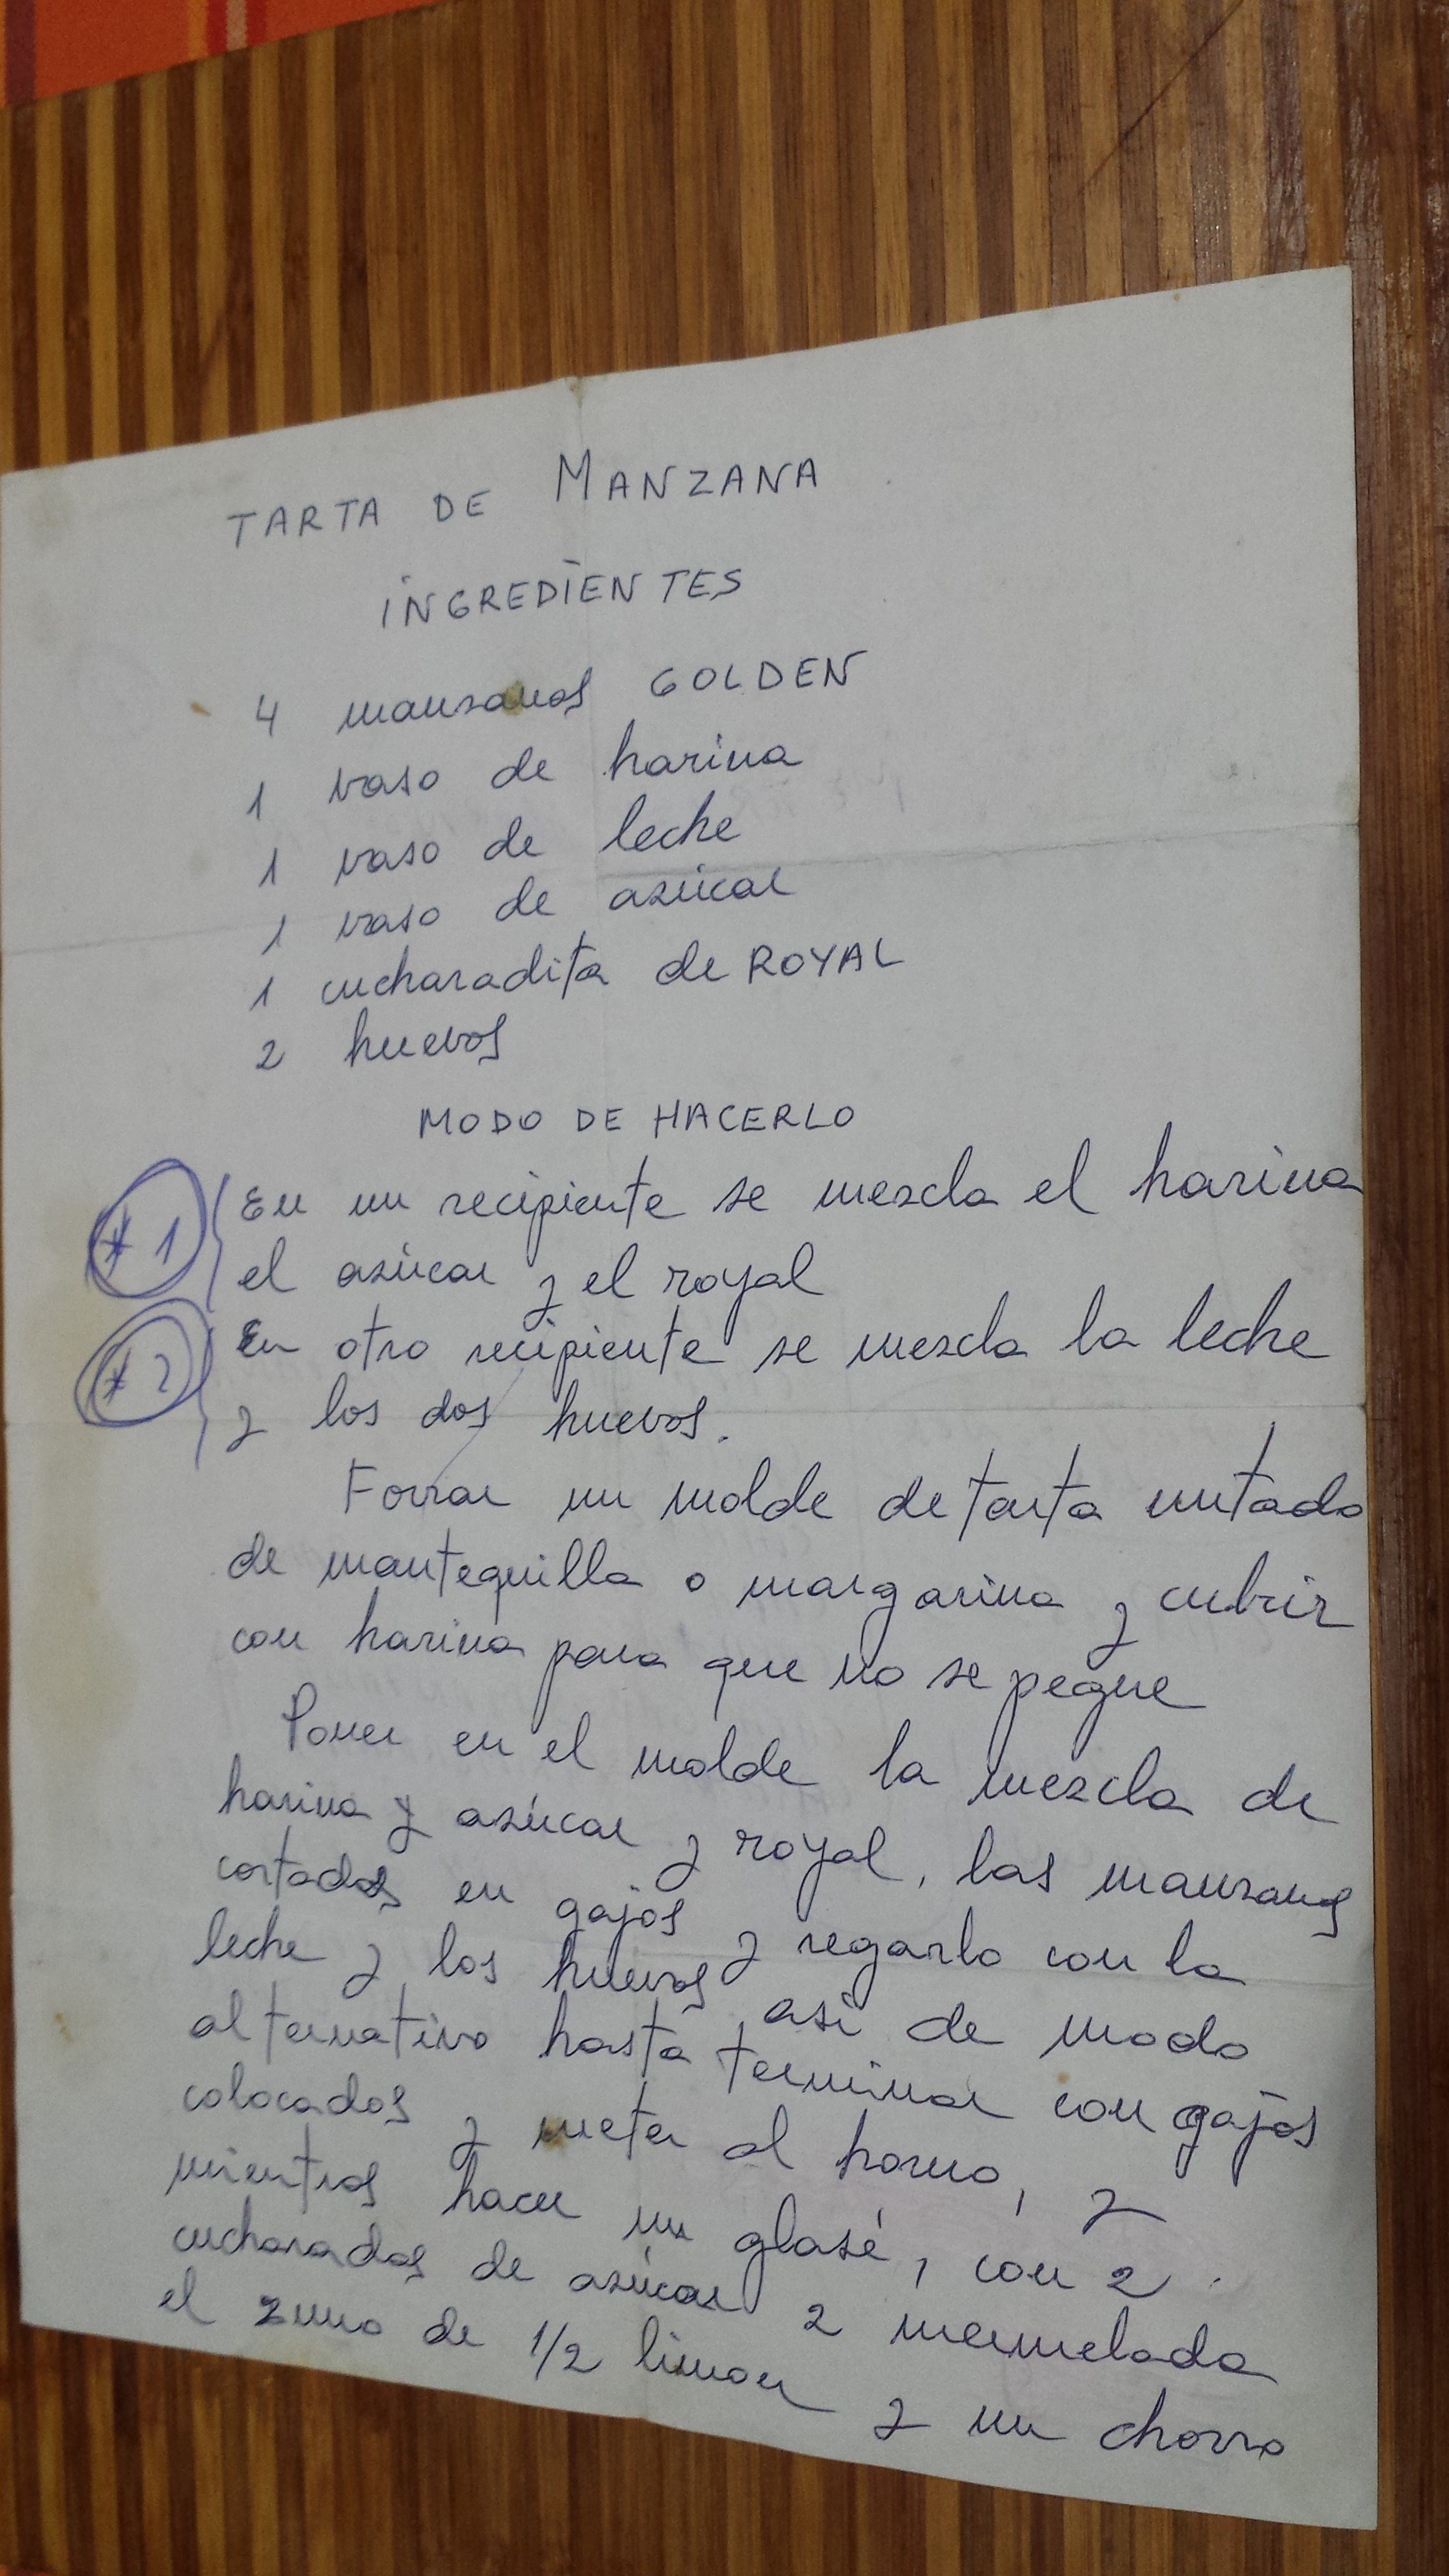 TARTA DE MANZANA
INGREDIENTES
4 manzanas GOLDEN
1 vaso de harina
1 vaso de leche
1 vaso de azúcar
1 cucharadita de ROYAL
2 huevos
MODO DE HACERLO
* 1 En un recipiente se mezcla el harina
el azúcar y el royal
* 2 En otro recipiente se mezcla la leche
y los dos huevos.
Forrar un molde de tarta untado
de mantequilla o margarina y cubrir
con harina para que no se pegue
Poner en el molde la mezcla de
harina y azúcar y royal, las manzanas
cortadas en gajos y regarlo con la
leche y los huevos así de modo
alternativo hasta terminar con gajos
colocados y meter al horno, y
mientras hacer un glasé, con 2
cucharadas de azúcar 2 mermelada
el zumo de 1/2 limon y un chorro